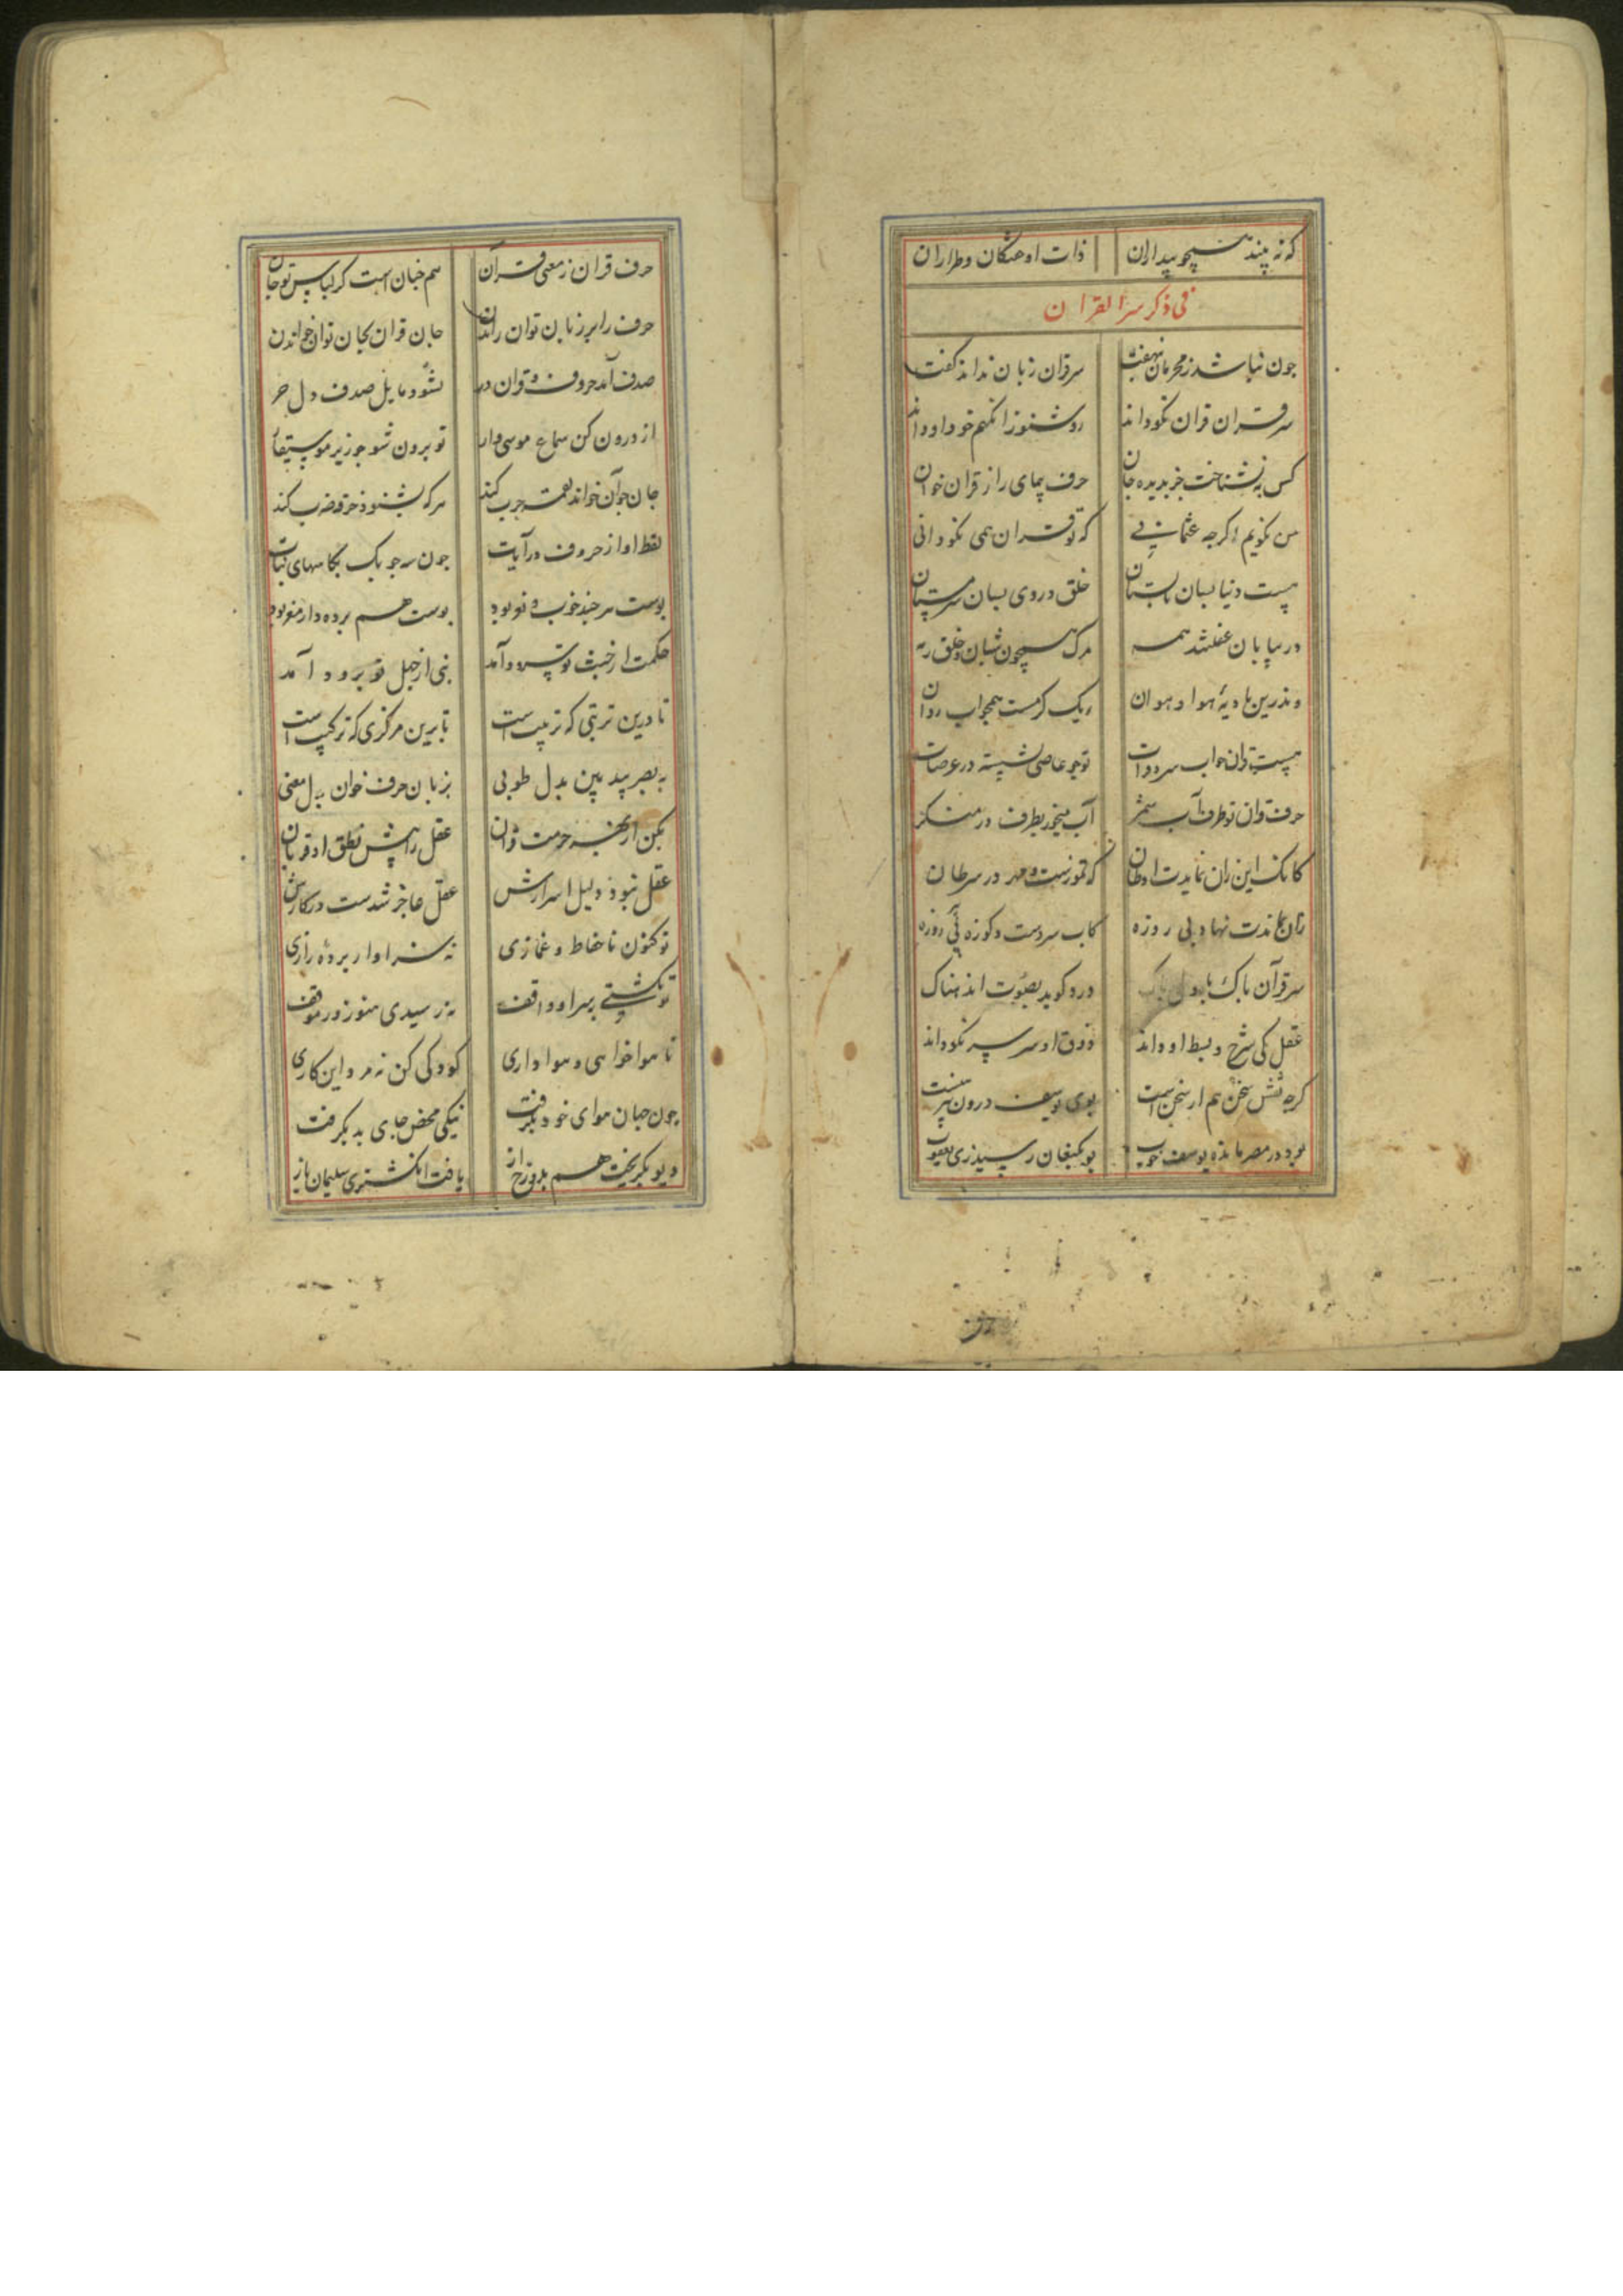 که نه بیند همچو بیداران ذات او خفتگان و طراران
فی ذکر سر القران
سر قران زبان نداند گفت جون نباشد ز محرمان نهفت
سر قران قران نکو داند رو شنو زانکه هم خود او داند
کس نشناخت جز بدیده جان حرف پیمای را ز قران خوان
من نکویم اکرجه عثمانی که تو قران همی نکو دانی
هست دنیا بسان تابستان خلق در وی بسان سرمستان
در بیابان غفلتند همه مرک همچون شبان و خلق رمه
وندرین بادیه هوا و هوان ریک کرمست همجو اب روان
هست قران جو اب سرد فرات تو جو عاصی تشنه در عرصات
حرف و قران تو ظرف و آب شمر آب میخور بظرف در منکر
کانک این زان نمایدت اوطان که تموزست و مهر در سرطان
کاب سردست و کوزه فیروزه
سر قرآن باک با دل باک درد کوید بصوت اندهناک
عقل کی شرح و بسط او داند ذوق او سر سر نکو داند
کرجه نقش سخن هم از سخن است بوی یوسف درون پیرهنست
بود در مصر مانده یوسف خوب بو بکنعان رسید زی یعقوب
حرف قران ز معنی قران هم جنان است کز لباس تو جان
حرف را بر زبان توان راندن جان قران بجان توان خواندن
صدف آمد حروف و قران در نشود مایل صدف دل حر
از درون کن سماع موسی وار تو برون شو جو زیر موسیقار
جان جو آن خواند لقمه جرب کند هرکه بشنود خرقه ضرب کند
لفظ اواز حروف در آیات جون سه جوبک بکاسهای نبات
بوست هرجند خوب و نو بود بوست هم برده دار مغز بود
حکمت از خبث تو سرود آمد نبی از جهل تو برود آمد
تا درین تربتی که ترتیب است تا برین مرکزی که ترکیب است
به بصر بید بین بدل طوبی بزبان حرف خوان بدل معنی
بکن از بهر حرمت قران عقل را پیش نطق او قربان
عقل نبود دلیل اسرارش عقل عاجز شدست در کارش
تو کنون ناحفاظ و غمازی نه سزاوار برده رازی
تو نکشتی بسر او واقف نه رسیدی هنوز در موقف
تا هوا خواهی و هوا داری کودکی کن نه مرد این کاری
جون جهان هوای خود بکرفت نیکی محض جای بد بکرفت
دیو بکریخت هم بدوزخ از یافت انکشتری سلیمان باز